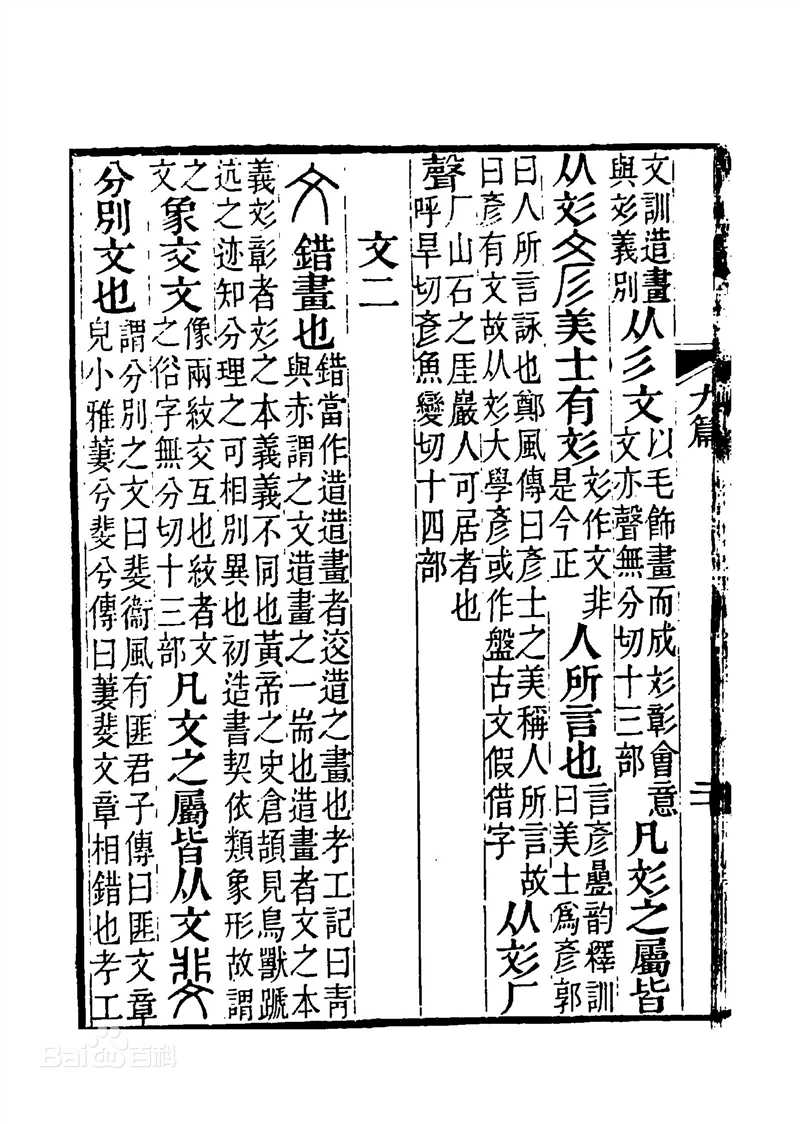 九篇
文訓逪畫
與彣義別
从彡文
以毛飾畫而成彣彰會意
文亦聲無分切十三部
凡彣之屬皆
从彣
彥
美士有彣
彣作文非
是今正
人所言也
言彥曡韵釋訓
曰美士爲彥郭
曰人所言詠也鄭風傳曰彥士之美稱人所言故
曰彥有文故从彣大學彥或作盤古文假借字
从彣厂
聲
厂山石之厓巖人可居者也
呼旱切彥魚變切十四部
文二
文
錯畫也
錯當作逪逪畫者䢒逪之畫也考工記曰靑
與赤謂之文逪畫之一耑也逪畫者文之本
義彣彰者彣之本義義不同也黃帝之史倉頡見鳥獸蹏
迒之迹知分理之可相別異也初造書契依類象形故謂
之
文
象交文
像兩紋交互也紋者文
之俗字無分切十三部
凡文之屬皆从文
斐
分別文也
謂分別之文曰斐衞風有匪君子傳曰匪文章
皃小雅萋兮斐兮傳曰萋斐文章相錯也考工
Bai百科